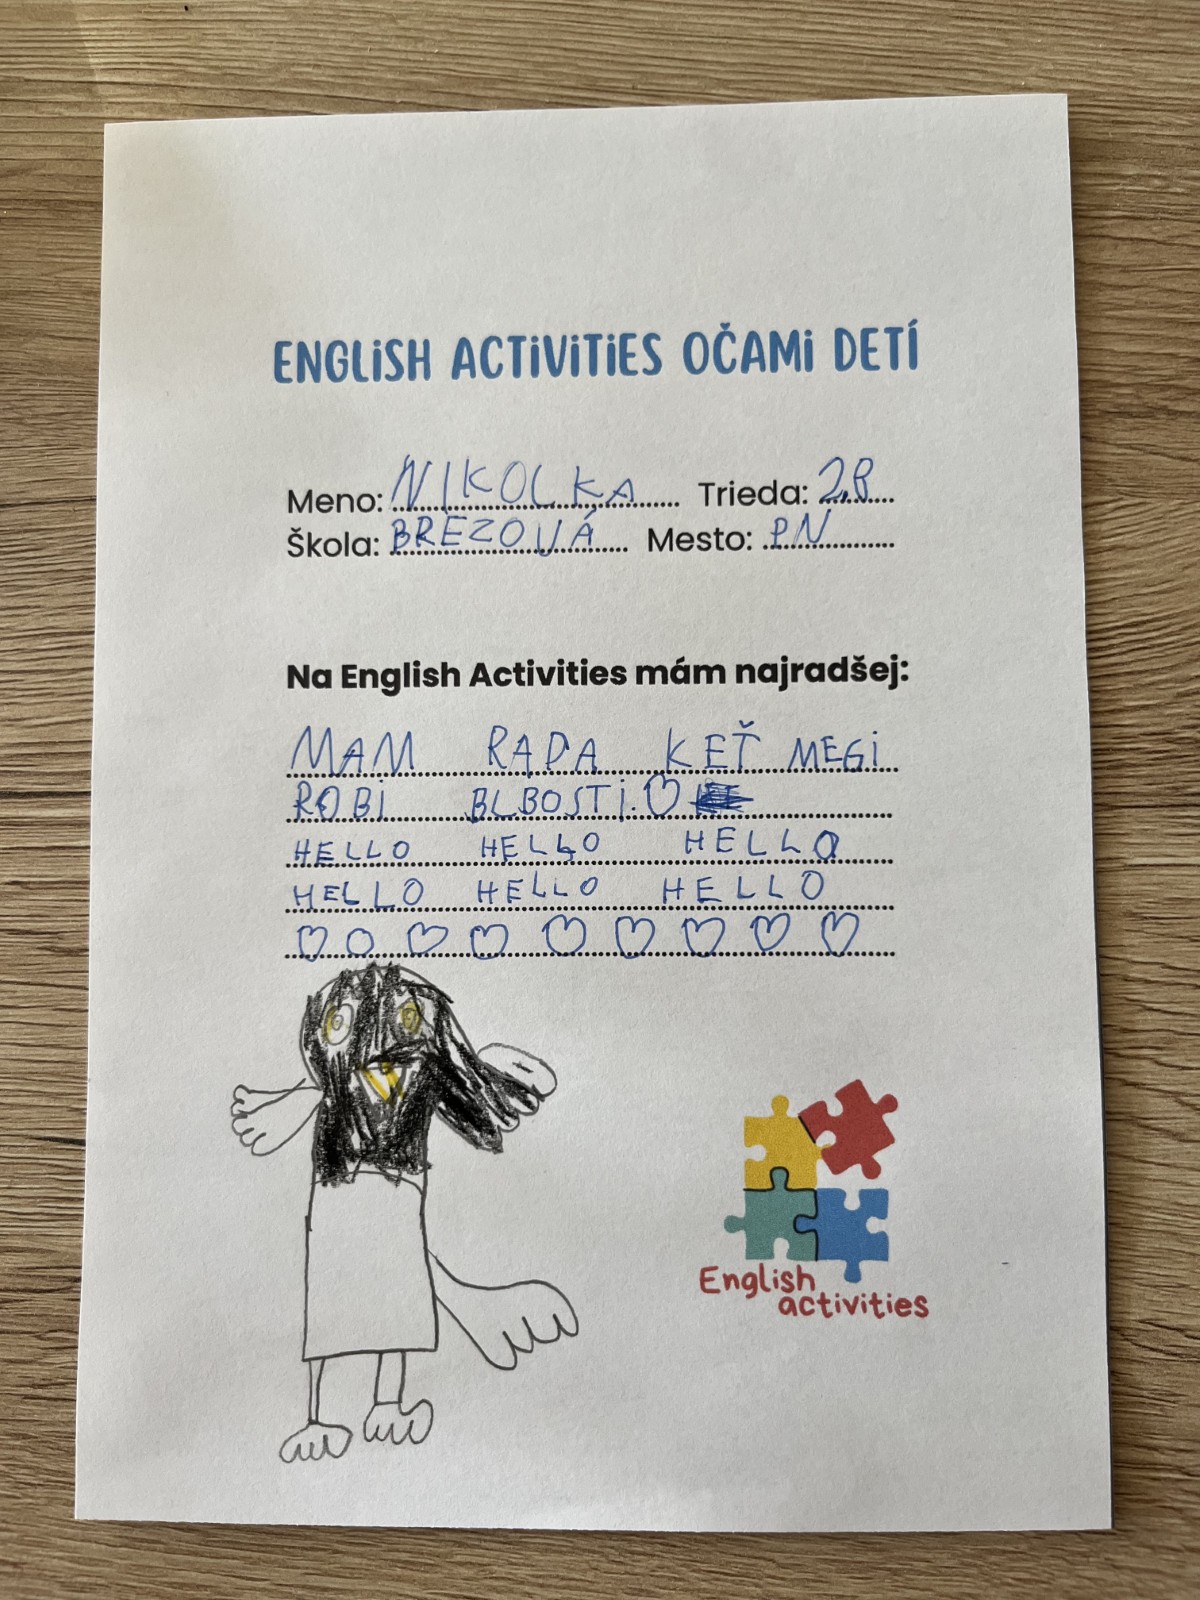 ENGLISH ACTIVITIES OČAMI DETÍ
Meno: NIKOLKA Trieda: 2.B
Škola: BREZOVÁ Mesto: PN
Na English Activities mám najradšej:
MAM RADA KEŤ MEGI
ROBI BLBOSTI.
HELLO HELLO HELLO
HELLO HELLO HELLO
English
activities